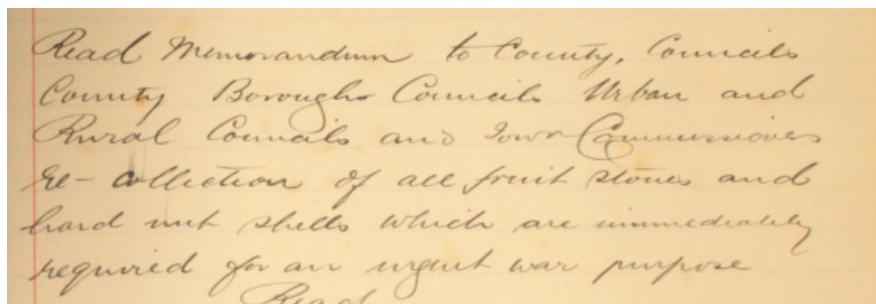 Read Memorandum to County, Councils
County Boroughs Councils Urban and
Rural Councils and Town Commissioners
re- collection of all fruit stones and
hard nut shells which are immediately
required for an urgent war purpose
Read